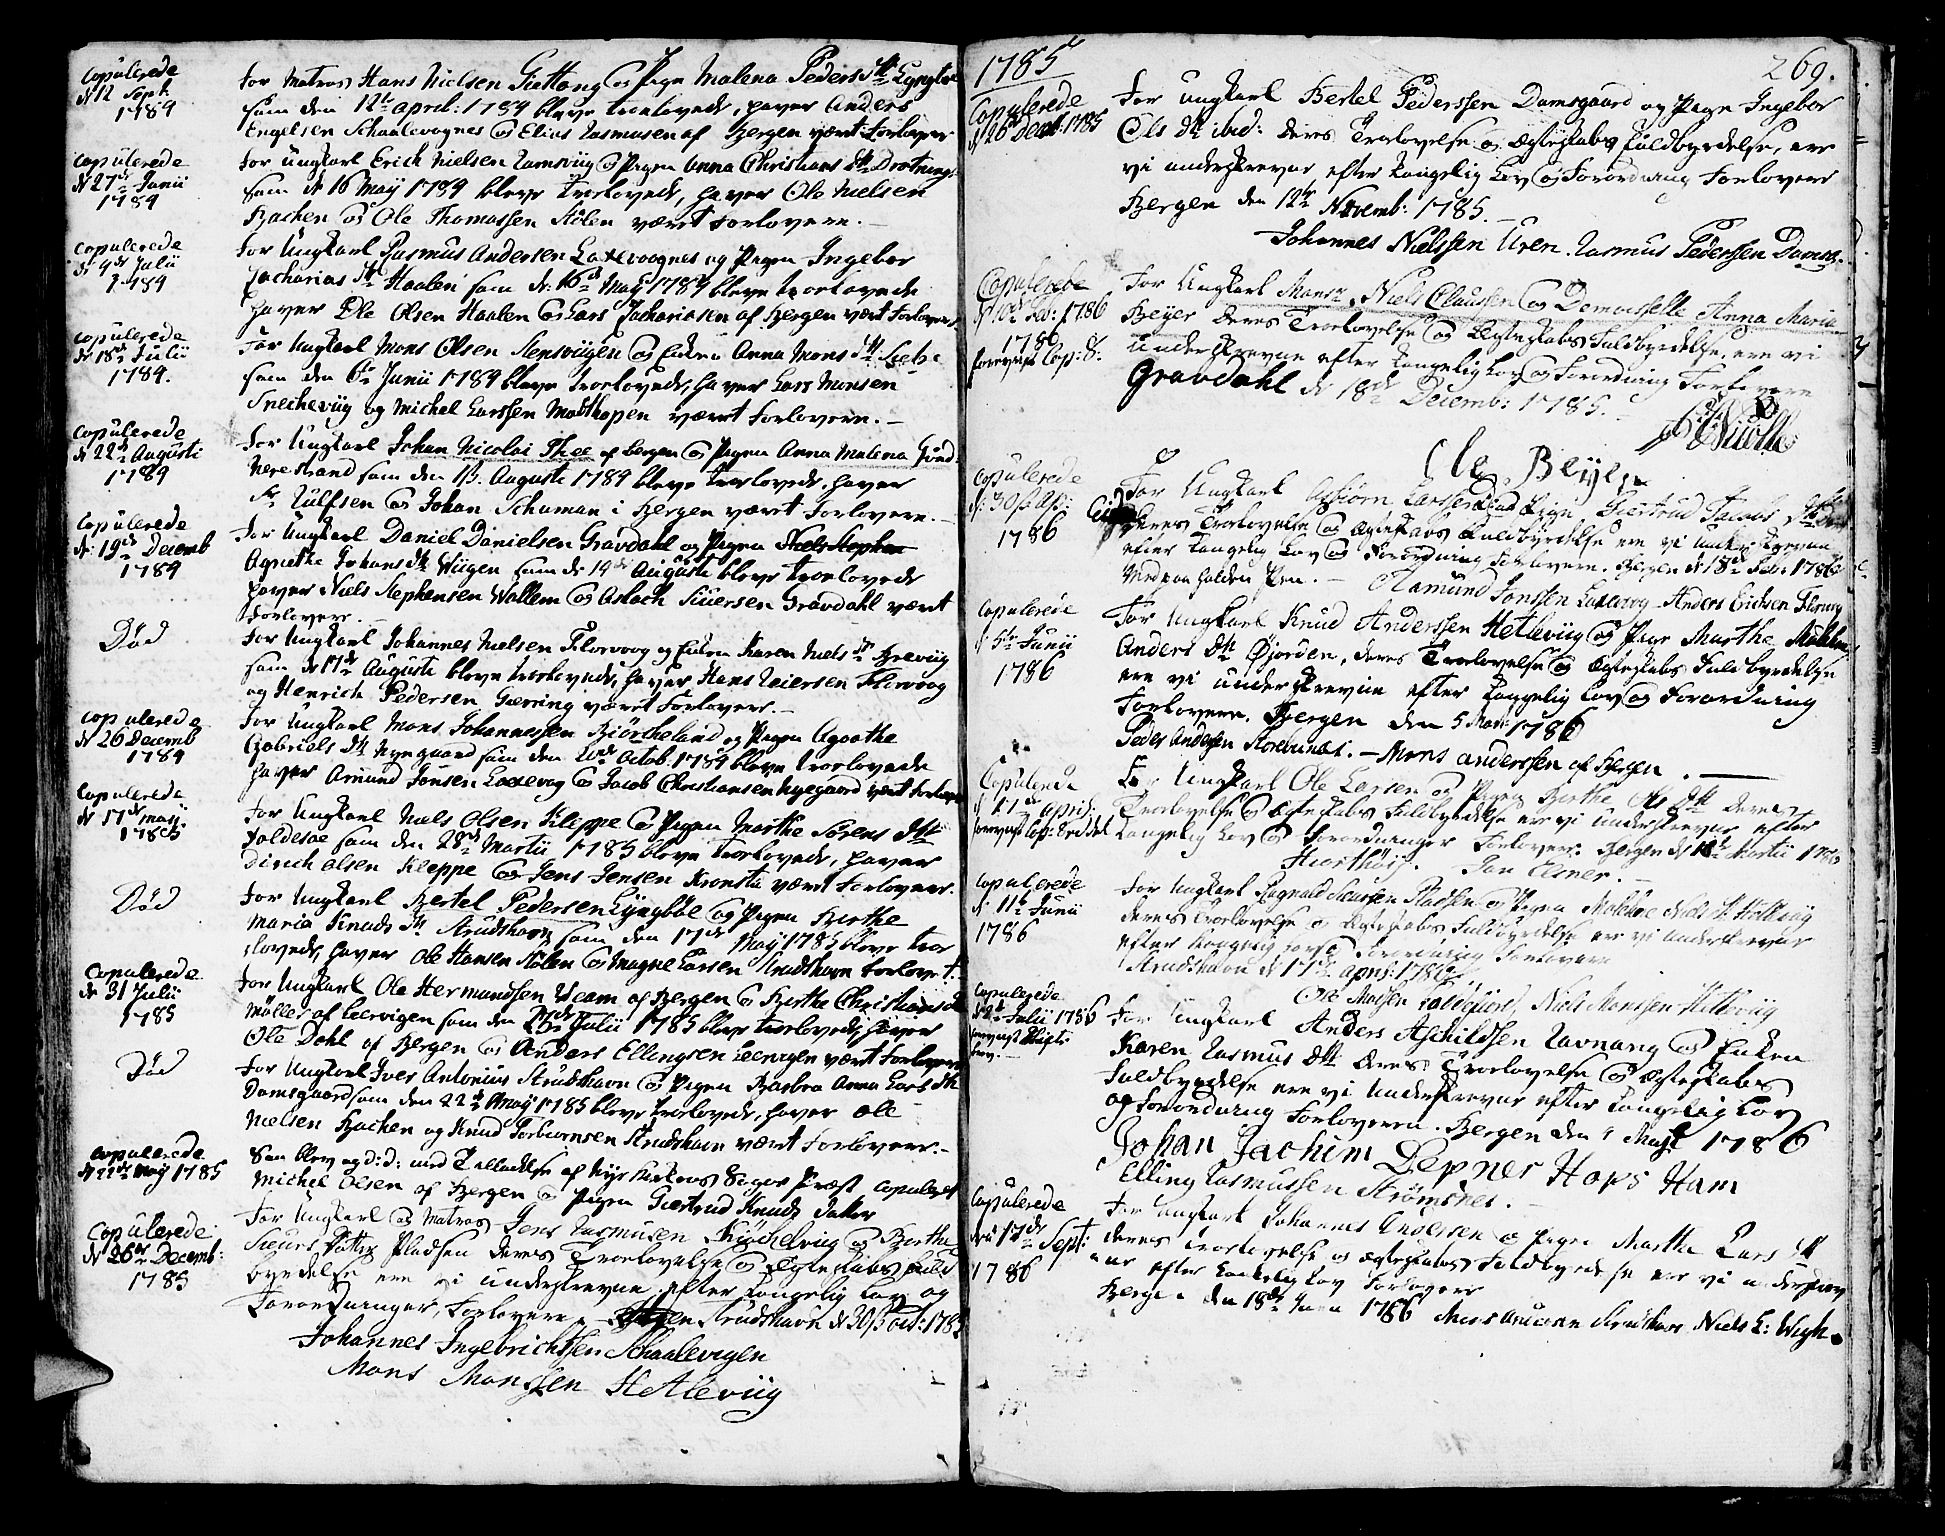 Copulerede
d 12 Sept.
1784
for Matros Hans Nielsen Giettang og Pige Malena Peders dtr Lyngbøe
som den 12te april: 1784 bleve troelovede, haver Anders
Engelsen Schaalevognes og Elias Rasmusen af Bergen været Forlover
Copulerede
d 27de Junii
1784
for Ungkarl Erich Nielsen Ramsviig og Pigen Anna Christians dtr Drotning
som d 16 Maij 1784 bleve troelovede, haver Ole Nielsen
Bachen og Ole Thomassen Stølen været Forlovere.
Copulerede
d 4de Julii
1784
for Ungkarl Rasmus Andersen Laxevognes og Pigen Ingebor
Zacharias dtr Haalen som d: 16de Maij 1784 bleve troelovede
haver Ole Olsen Haalen og Lars Zachariasen af Bergen været Forlovere
Copulerede
d 18de Julii
1784.
for Ungkarl Mons Olsen og Enken Anna Mons dtr
som den 6te Junii 1784 bleve troelovede, haver Lars Monsen
Snecheviig og Michel Larssen været Forlovere.
Copulerede
d 22de Augusti
1784
for Ungkarl Johan Nicolai Thee af Bergen og Pigen Anna Malena
Nerestrand som den 1ß. Augusti 1784 bleve troelovede, haver
Sr. Rulfsen og Johan Schuman i Bergen været Forlovere.
Copulerede
d: 19de Decemb
1784
for Ungkarl Daniel Danielsen Gravdahl og Pigen
Agnethe Johans dtr Wiigen som d: 19de Augusti bleve troelovede
haver Niels Stephensen Wallem og Aslach Siversen Gravdahl været
Forlovere.
Død
for Ungkarl Johannes Nielsen Florvoog og Enken Karen Niels dtr Breviig
som d 17de Augusti bleve troelovede, haver Hans Reiersen Florvoog
og Henrich Pedersen Gierring været Forlovere.
Copulerede
d 26 Decemb
1784
for Ungkarl Mons Johannessen Biørcheland og Pigen Agathe
Gabriels dtr Nyegaard som den 20de Octob. 1784 bleve troelovede
haver Amund Jonsen Laxevog og Jacob Christiansen Nyegaard været Forlovere
Copulerede
d 17de Maij
1785
for Ungkarl Niels Olsen Kleppe og Pigen Marthe Sørens dtr
Foldesøe som den 28de Martii 1785 bleve troelovede, haver
Dirich Olsen Kleppe og Jens Jensen Kronstæ været Forlovere.
Død
for Ungkarl Bertel Pedersen Lyngbøe og Pigen Birthe
Maria Knuds dtr Strudshavn som den 17de Maij 1785 bleve troe
lovede, haver Ole Hansen Stølen og Magne Larsen Strudshavn Forlovet.
Copulerede
d 31 Julii
1785
for Ungkarl Ole Hermundsen Weam af Bergen og Birthe Christians dtr
Møller af Leervigen som den Julii 1785 bleve troelovede, haver
Ole Dahl af Bergen og Anders Ellingsen Leervigen været Forlovere
Død
for Ungkarl Iver Antonius Strudshavn og Pigen Barbra Anna Lars dtr
Damsgaard som den 22de Maij 1785 bleve troelovede, haver Ole
Nielsen Bachen og Knud Torbiørnsen Strudshavn været Forlovere.
Copulerede
d 22de Maij 1785
Saa blev og d: d: med Tilladelse af Nye Kirkens Sogne Præst copuleret
Michel Olsen af Bergen og Pigen Giertrud Knuds datter
Copulerede
d 26de Decemb:
1785
for Ungkarl og Matros Jens Rasmusen og Birthe
Siurs datter Pladsen deres Troelovelse og Ægteskabs Fuld
byrdelse ere vi underskrevne efter Kongelig Lov og
Forordninger, Forlovere. Strudshavn d 30ß Oct: 1785
Johannes Ingebrichtsen Schaalevigen
Mons Monssen Hetleviig
1785
269.
Copulerede
d 26 Decb: 1785
for Ungkarl Bertel Pederssen Damsgaard og Pigen Ingebor
Ols dtr ibid: deres Troelovelse og Ægteskabs Fuldbyrdelse, ere
vi underskrevne efter Kongelig Lov og Forordning Forlovere
Bergen den 12te Novemb: 1785.
Johannes Nielssen Uren. Rasmus Pederssen Damsg.
Copulerede
d 10de Feb: 1786
1786
forevyst Cop: S:
for Ungkarl Monsr. Niels Claussen og Demoiselle Anna Maria
Beyer deres Troelovelse og Ægteskabs Fuldbyrdelse, ere vi
underskrevne efter Kongelig Lov og Forordning Forlovere
Gravdahl d 18de Decemb: 1785.
Ole Beyer
Copulerede
1786
for Ungkarl Asbiørn Larssen og Pige Giertrud Jacobs dtr
deres Troelovelse og Ægteskabs Fuldbyrdelse ere vi underskrevne
efter Kongelig Lov og Forordning Forlovere. Bergen d 18de Feb: 1786
Med paa holden Pen. Aamund Jonssen Laxevog Anders Ericksen
Copulerede
d: 5te Junii
1786
for Ungkarl Knud Anderssen Hetleviig og Pige Marthe
Anders dtr Øjorden, deres Troelovelse og Ægteskabs Fuldbyrdelse
ere vi underskrevne efter Kongelig Lov og Forordning
Forlovere. Bergen den 5 Mar: 1786
Peder Andersen Storebuneset. - Mons anderssen af Bergen.
Copulerede
d: 17de april:
forevyst Cop: Seddel
for Ungkarl Ole Larsen og Pigen Birthe Ols dtr deres
Troelovelse og Ægteskabs Fuldbyrdelse ere vi underskrevne efter
Kongelig Lov og Forordninger Forlovere. Bergen d 18de Martii 1786
Hiorthøy. Jan Elsner.
Copulerede
d: 11te Junii
1786
for Ungkarl Rognald Pladsen og Pigen Malene Niels dtr Hetleviig
deres Troelovelse og Ægteskabs Fuldbyrdelse ere vi underskrevne
efter Kongelig Forordning Forlovere
Strudshavn d 17de april: 1786.
Ole Monsen Niels Monssen Hetleviig
Copulerede
d 2de Julii 1786
forevyst Skifte
brev.
for Ungkarl Anders Aschildssen Ravnang og Enken
Karen Rasmus dtr deres Troelovelse og Ægteskabs
Fuldbyrdelse ere vi underskrevne efter Kongelig Lov
og Forordning Forlovere. Bergen den Maji 1786
Johan Jachim Depner Hops Ham
Elling Rasmussen Strømsnes.
Copulerede
d: 17de Sept:
1786
for Ungkarl Johannes Andersen og Pigen Marthe Lars dtr
deres troelovelse og Ægteskabs Fuldbyrdelse ere vi underskrev
ne efter Kongelig Lov Forlovere
Bergen den 18de Juni 1786 Niels L: Wigh.